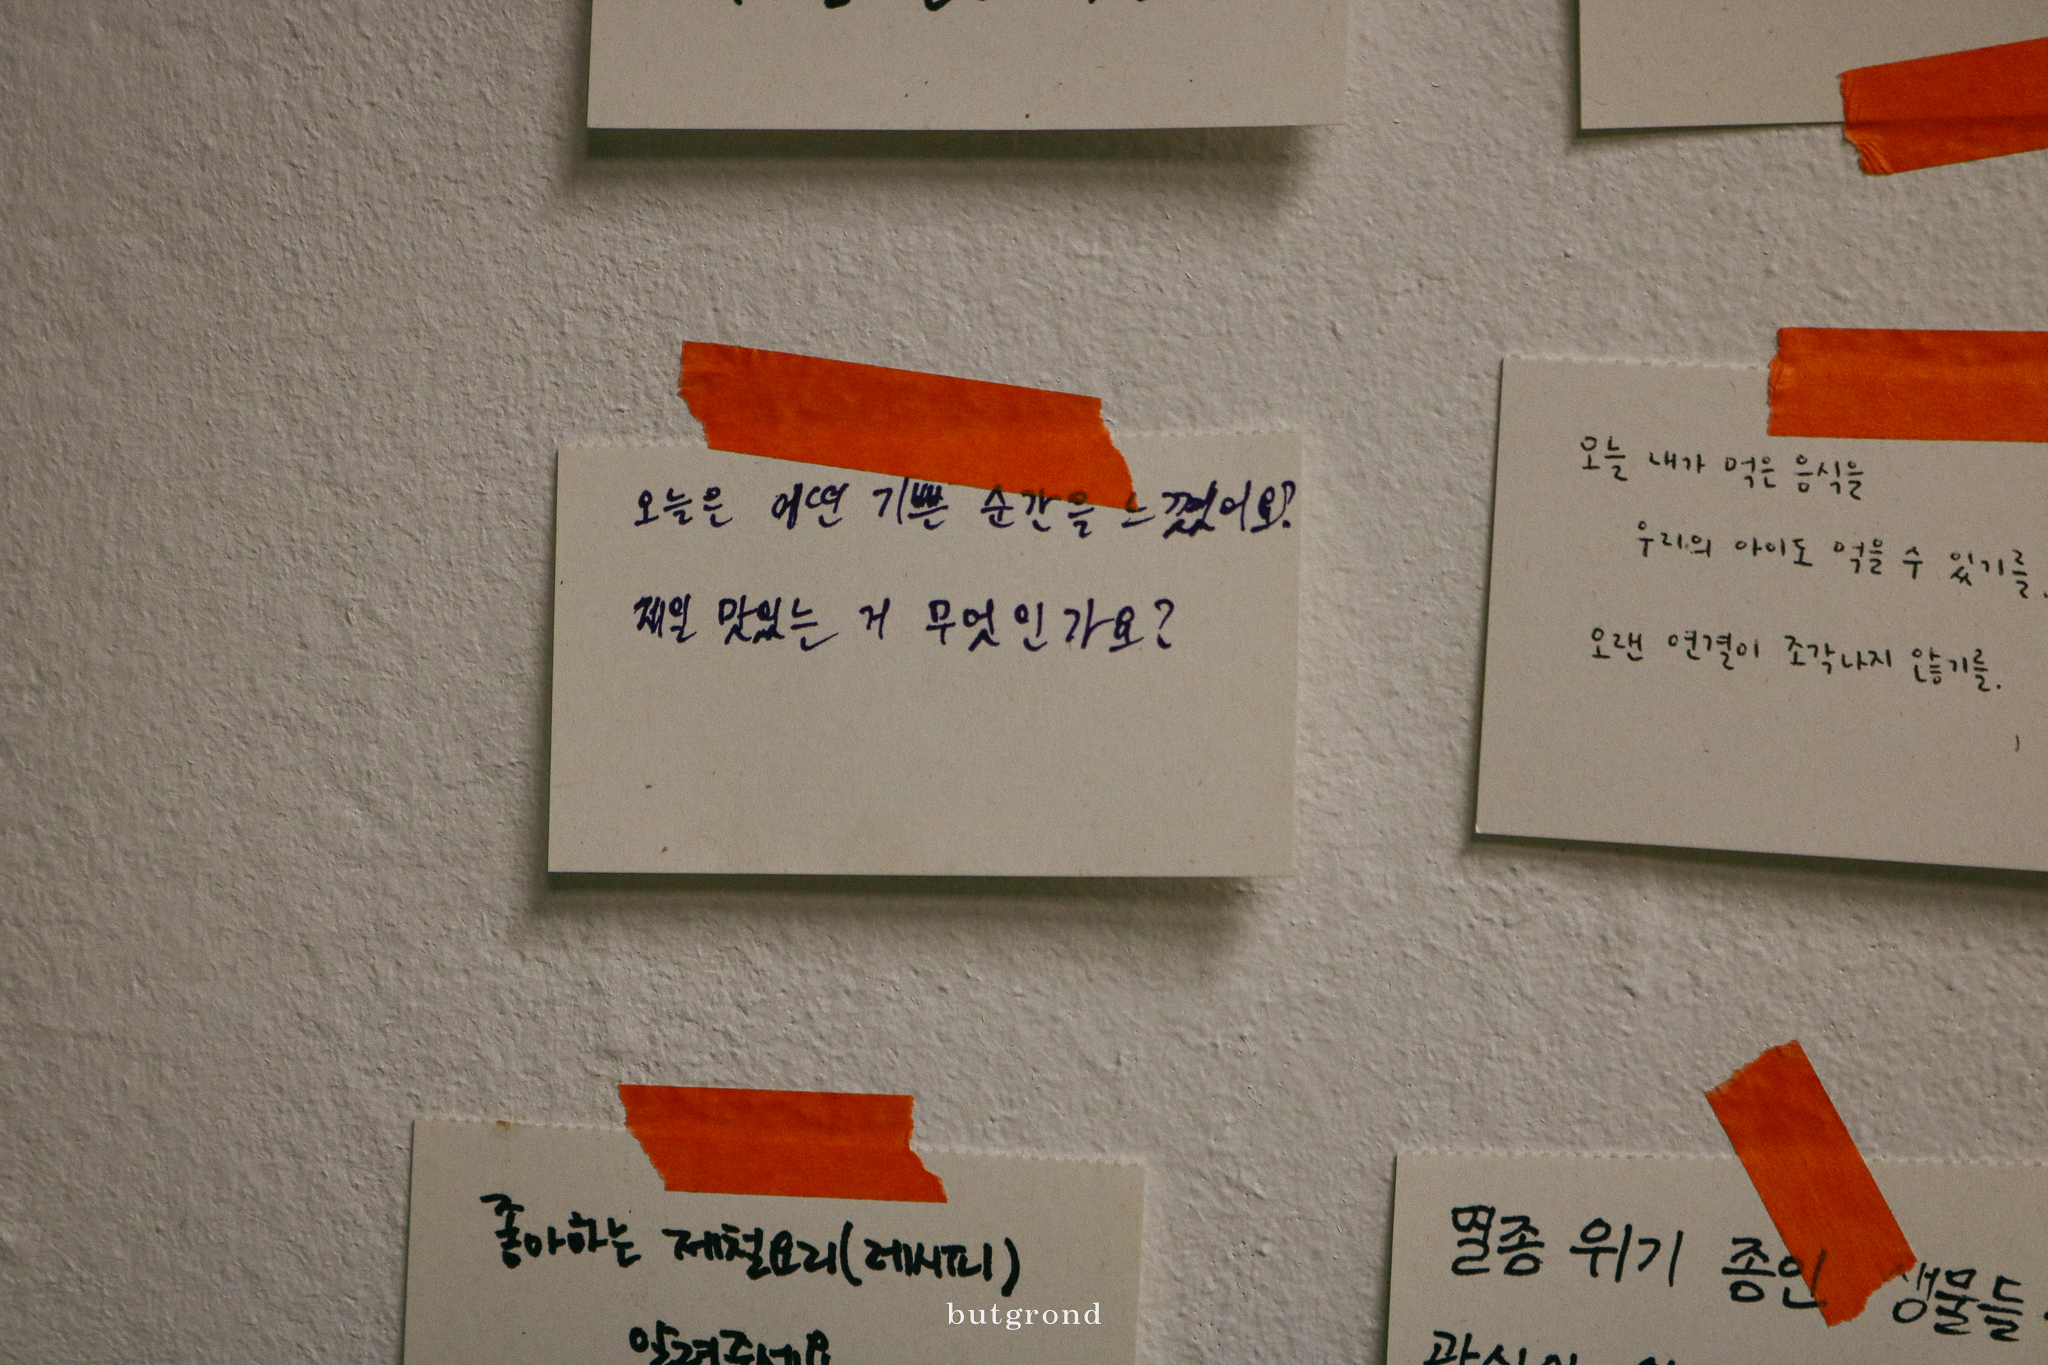 오늘은 어떤 기쁜 순간을 느꼈어요?
제일 맛있는 거 무엇인가요?
오늘 내가 먹은 음식을
우리의 아이도 먹을 수 있기를.
오랜 연결이 조각나지 않기를.
좋아하는 제철요리(레시피)
알려주세요
멸종 위기 종인 생물들
butgrond